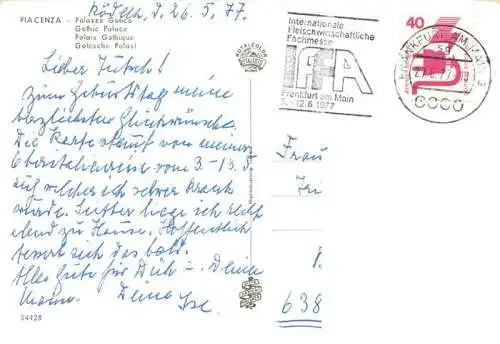 Rödelh., d. 26.5.77.
PIACENZA - Palazzo Gotico
Gothic Palace
Palais Gothique
Gotisches Palast
Lieber Jutsch!
Zum Geburtstag meine
herzlichsten Glückwünsche.
Die Karte stammt von meiner
Oberitalienreise vom 3.-13.5.
auf welcher ich schwer krank
wurde. Seither liege ich
zu Hause. Hoffentlich
bessert sich das bald.
Alles Gute für Dich u. Deine
Deine Ilse
34428
Internationale
Fleischwirtschaftliche
Fachmesse
IFFA
Frankfurt am Main
12.6.1977
FRANKFURT AM MAIN 3
6000
40
Frau
638